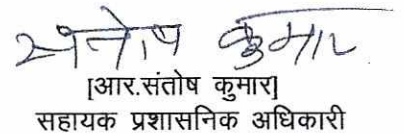 संतोष कुमार
[आर.संतोष कुमार]
सहायक प्रशासनिक अधिकारी